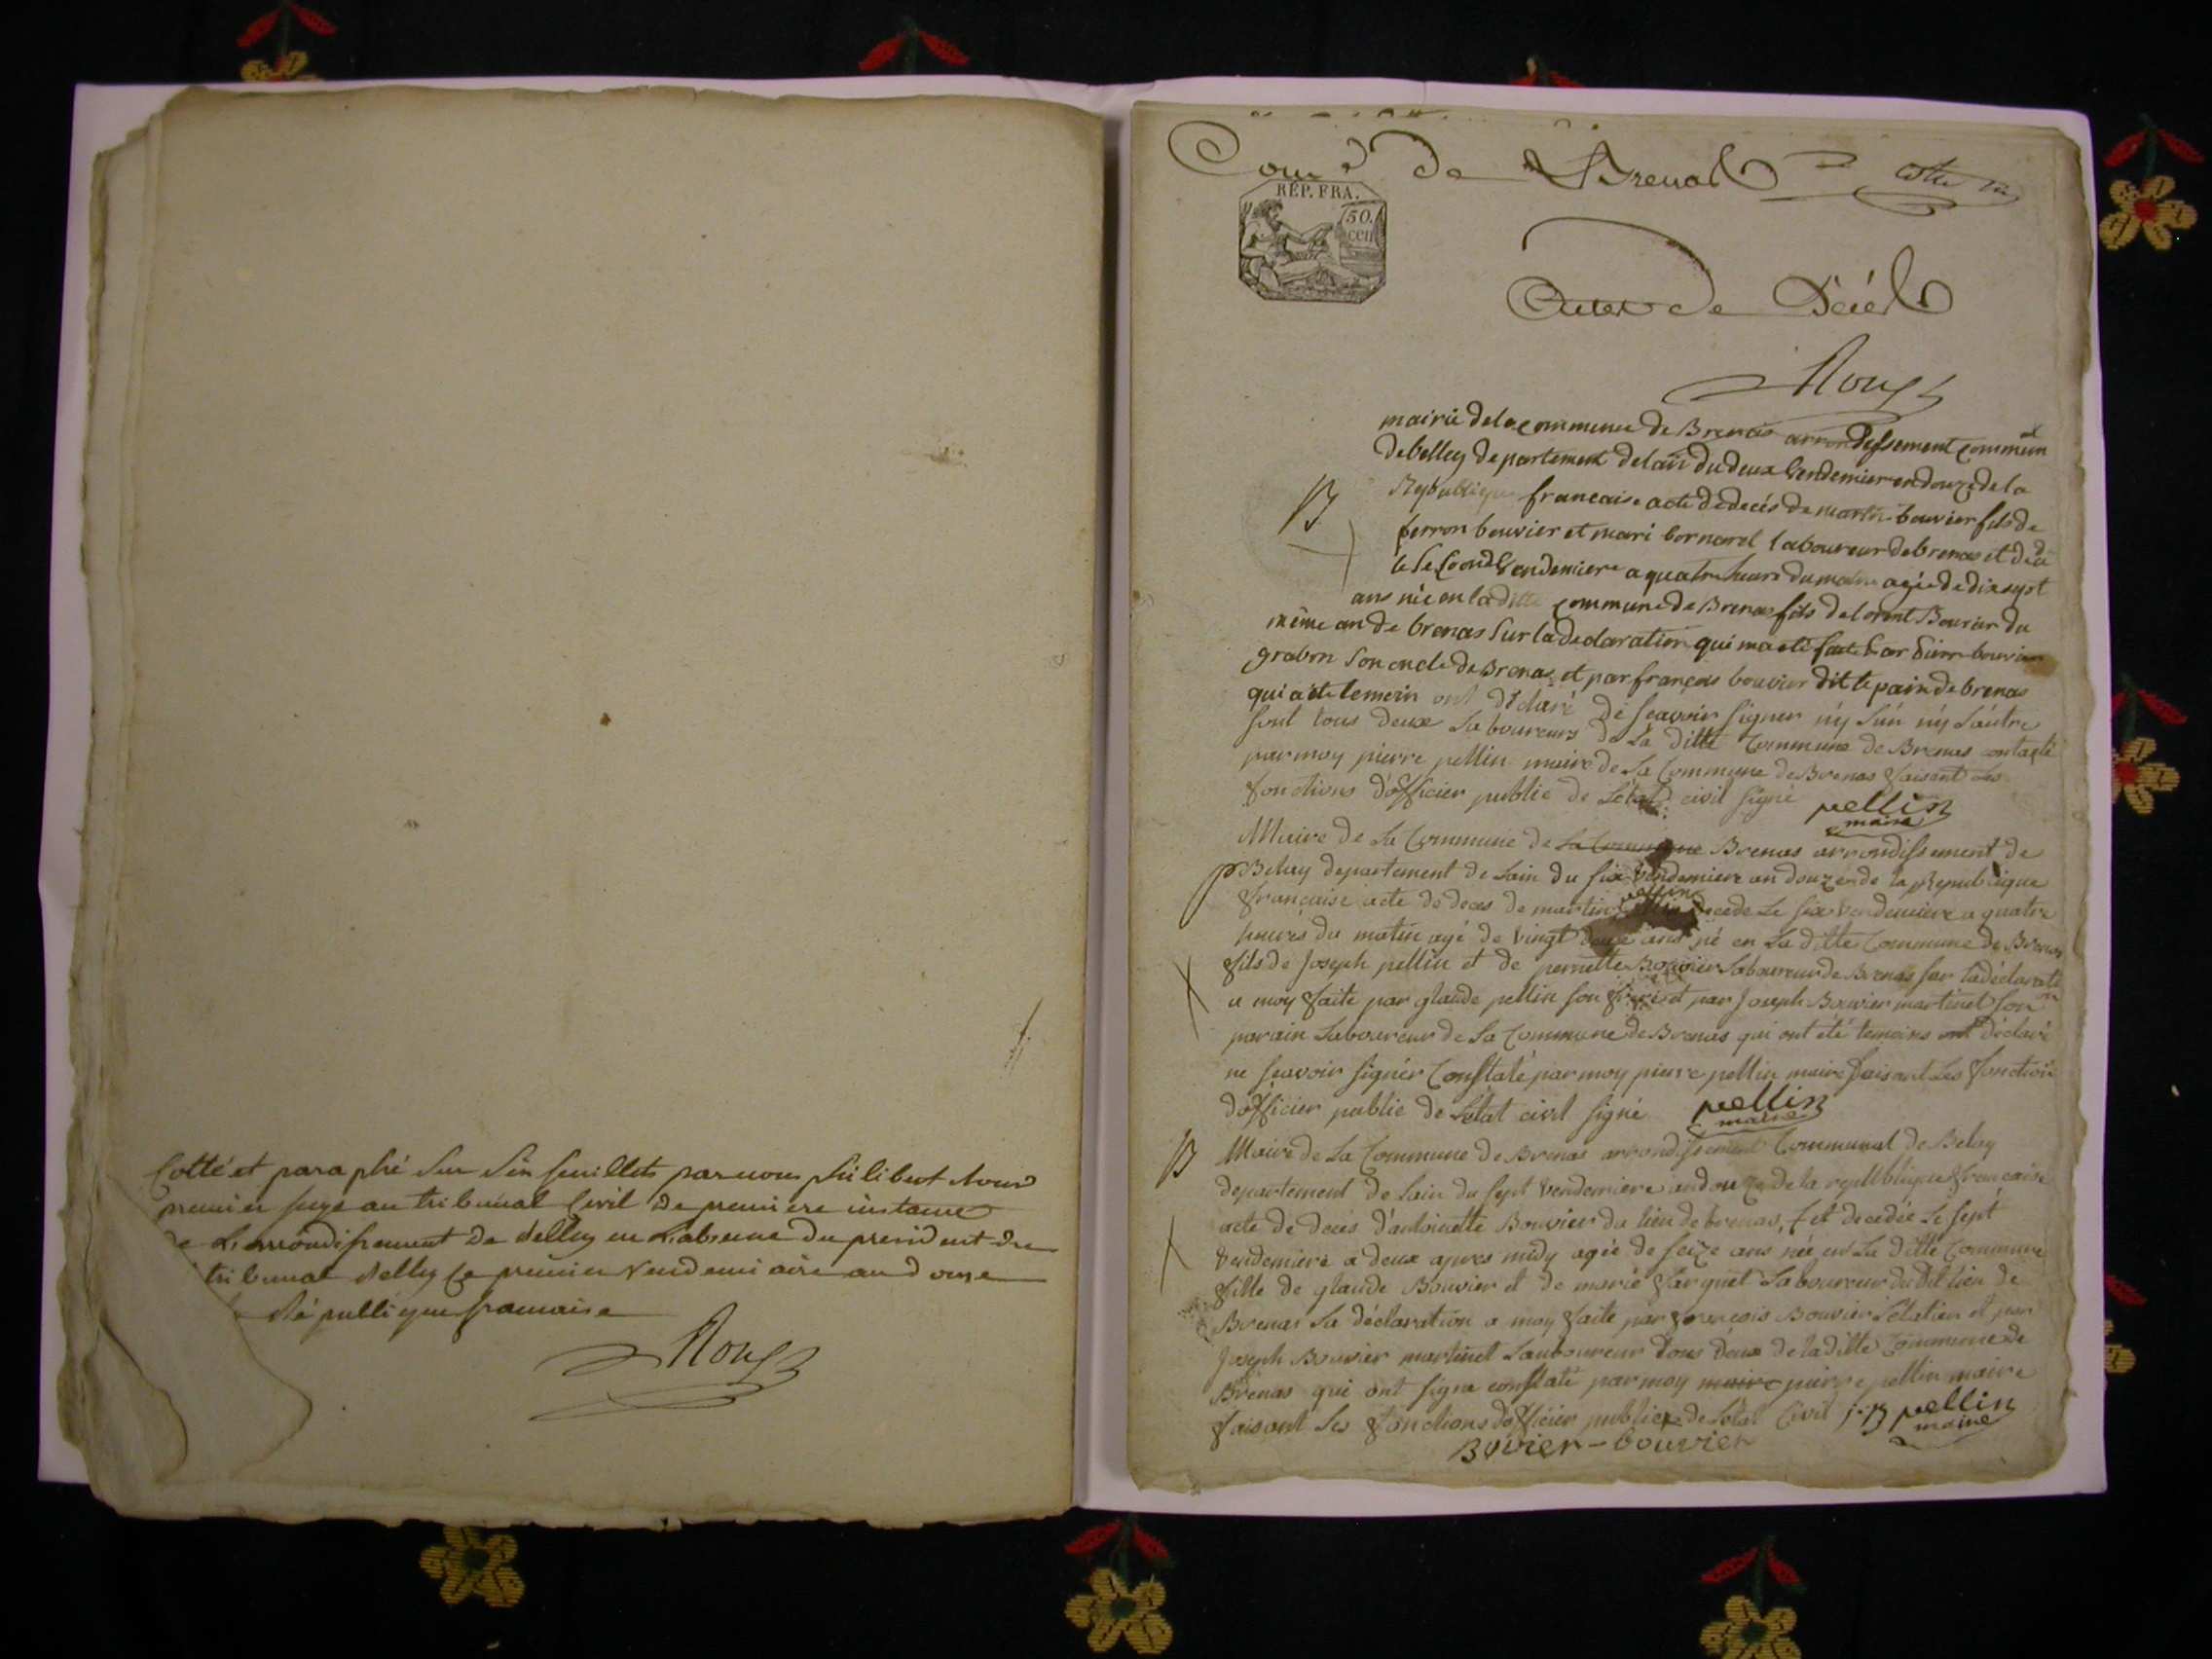 Cotté et paraphé sur six feuillets par nous philibert
premier juge au tribunal Civil de premiere instance
de L'arrondissement de Belley en L'absence du president du
tribunal Belley Ce premier Vendemiaire an douse
Républi que francaise
Com.e de Brenat
REP. FRA.
50.
cen
Actes de Décès
mairie delacommune de Brenas arrondissement commun
debelley departement delain dudeux Vendemier an douze dela
Republique francaise acte dedecés de martin bouvier fils de
perron bouvier et mari bornarel laboureur debrenas et
le Second Vendemiere a quatre heurs du matin agée de dix sept
ans née en laditte commune de Brenas fils de lorent Bouvier du
même an de brenas Sur la declaration qui ma eté faite par bouvier
grabon Son oncle de Brenas et par françois bouvier dit le pain de brenas
qui a été temoin ont déclaré de scavoir signer n'y L'un n'y L'autre
sont tous deux Laboureurs de La ditte Commune de Brenas
par moy pierre pellin maire de La Commune de Brenas faisant Les
fonctions d'officier public de L'état civil signé pellin
maire
Maire de La Commune de La Commune Brenas arrondissement de
Beley departement de Lain du six Vendemiere an douze de la Republique
française acte de deces de martin pellin decede Le six Vendemiere a quatre
heures du matin agé de vingt deux ans né en La ditte Commune de Brenas
fils de Joseph pellin et de pernette Bouvier Laboureur de Brenas sur la déclaration
a moy faite par glaude pellin son frere et par Joseph Bouvier martinet son
parain Laboureur de La Commune de Brenas qui ont été temoins ont déclaré
ne scavoir signer Constaté par moy pierre pellin maire faisant Les fonction
d'officier public de L'etat civil signé pellin
maire
B Maire de La Commune de Brenas arrondissement Communal de Beley
departement de Lain du sept Vendemiere an douze de la republlique francaise
acte de deces d'antoinette Bouvier du lieu de brenas, decedée Le sept
Vendemiere a deux apres midy agée de seize ans née en La ditte Commune
fille de glaude Bouvier et de marie Larquet Laboureur du dit lieu de
Brenas La déclaration a moy faite par françois Bouvier et par
Joseph Bouvier martinet Laboureur tous deux de la ditte Commune de
Brenas qui ont signé constaté par moy maire pierre pellin maire
faisant Les fonctions d'officier public de L'état Civil J.B pellin
maire
Bovier - bouvier